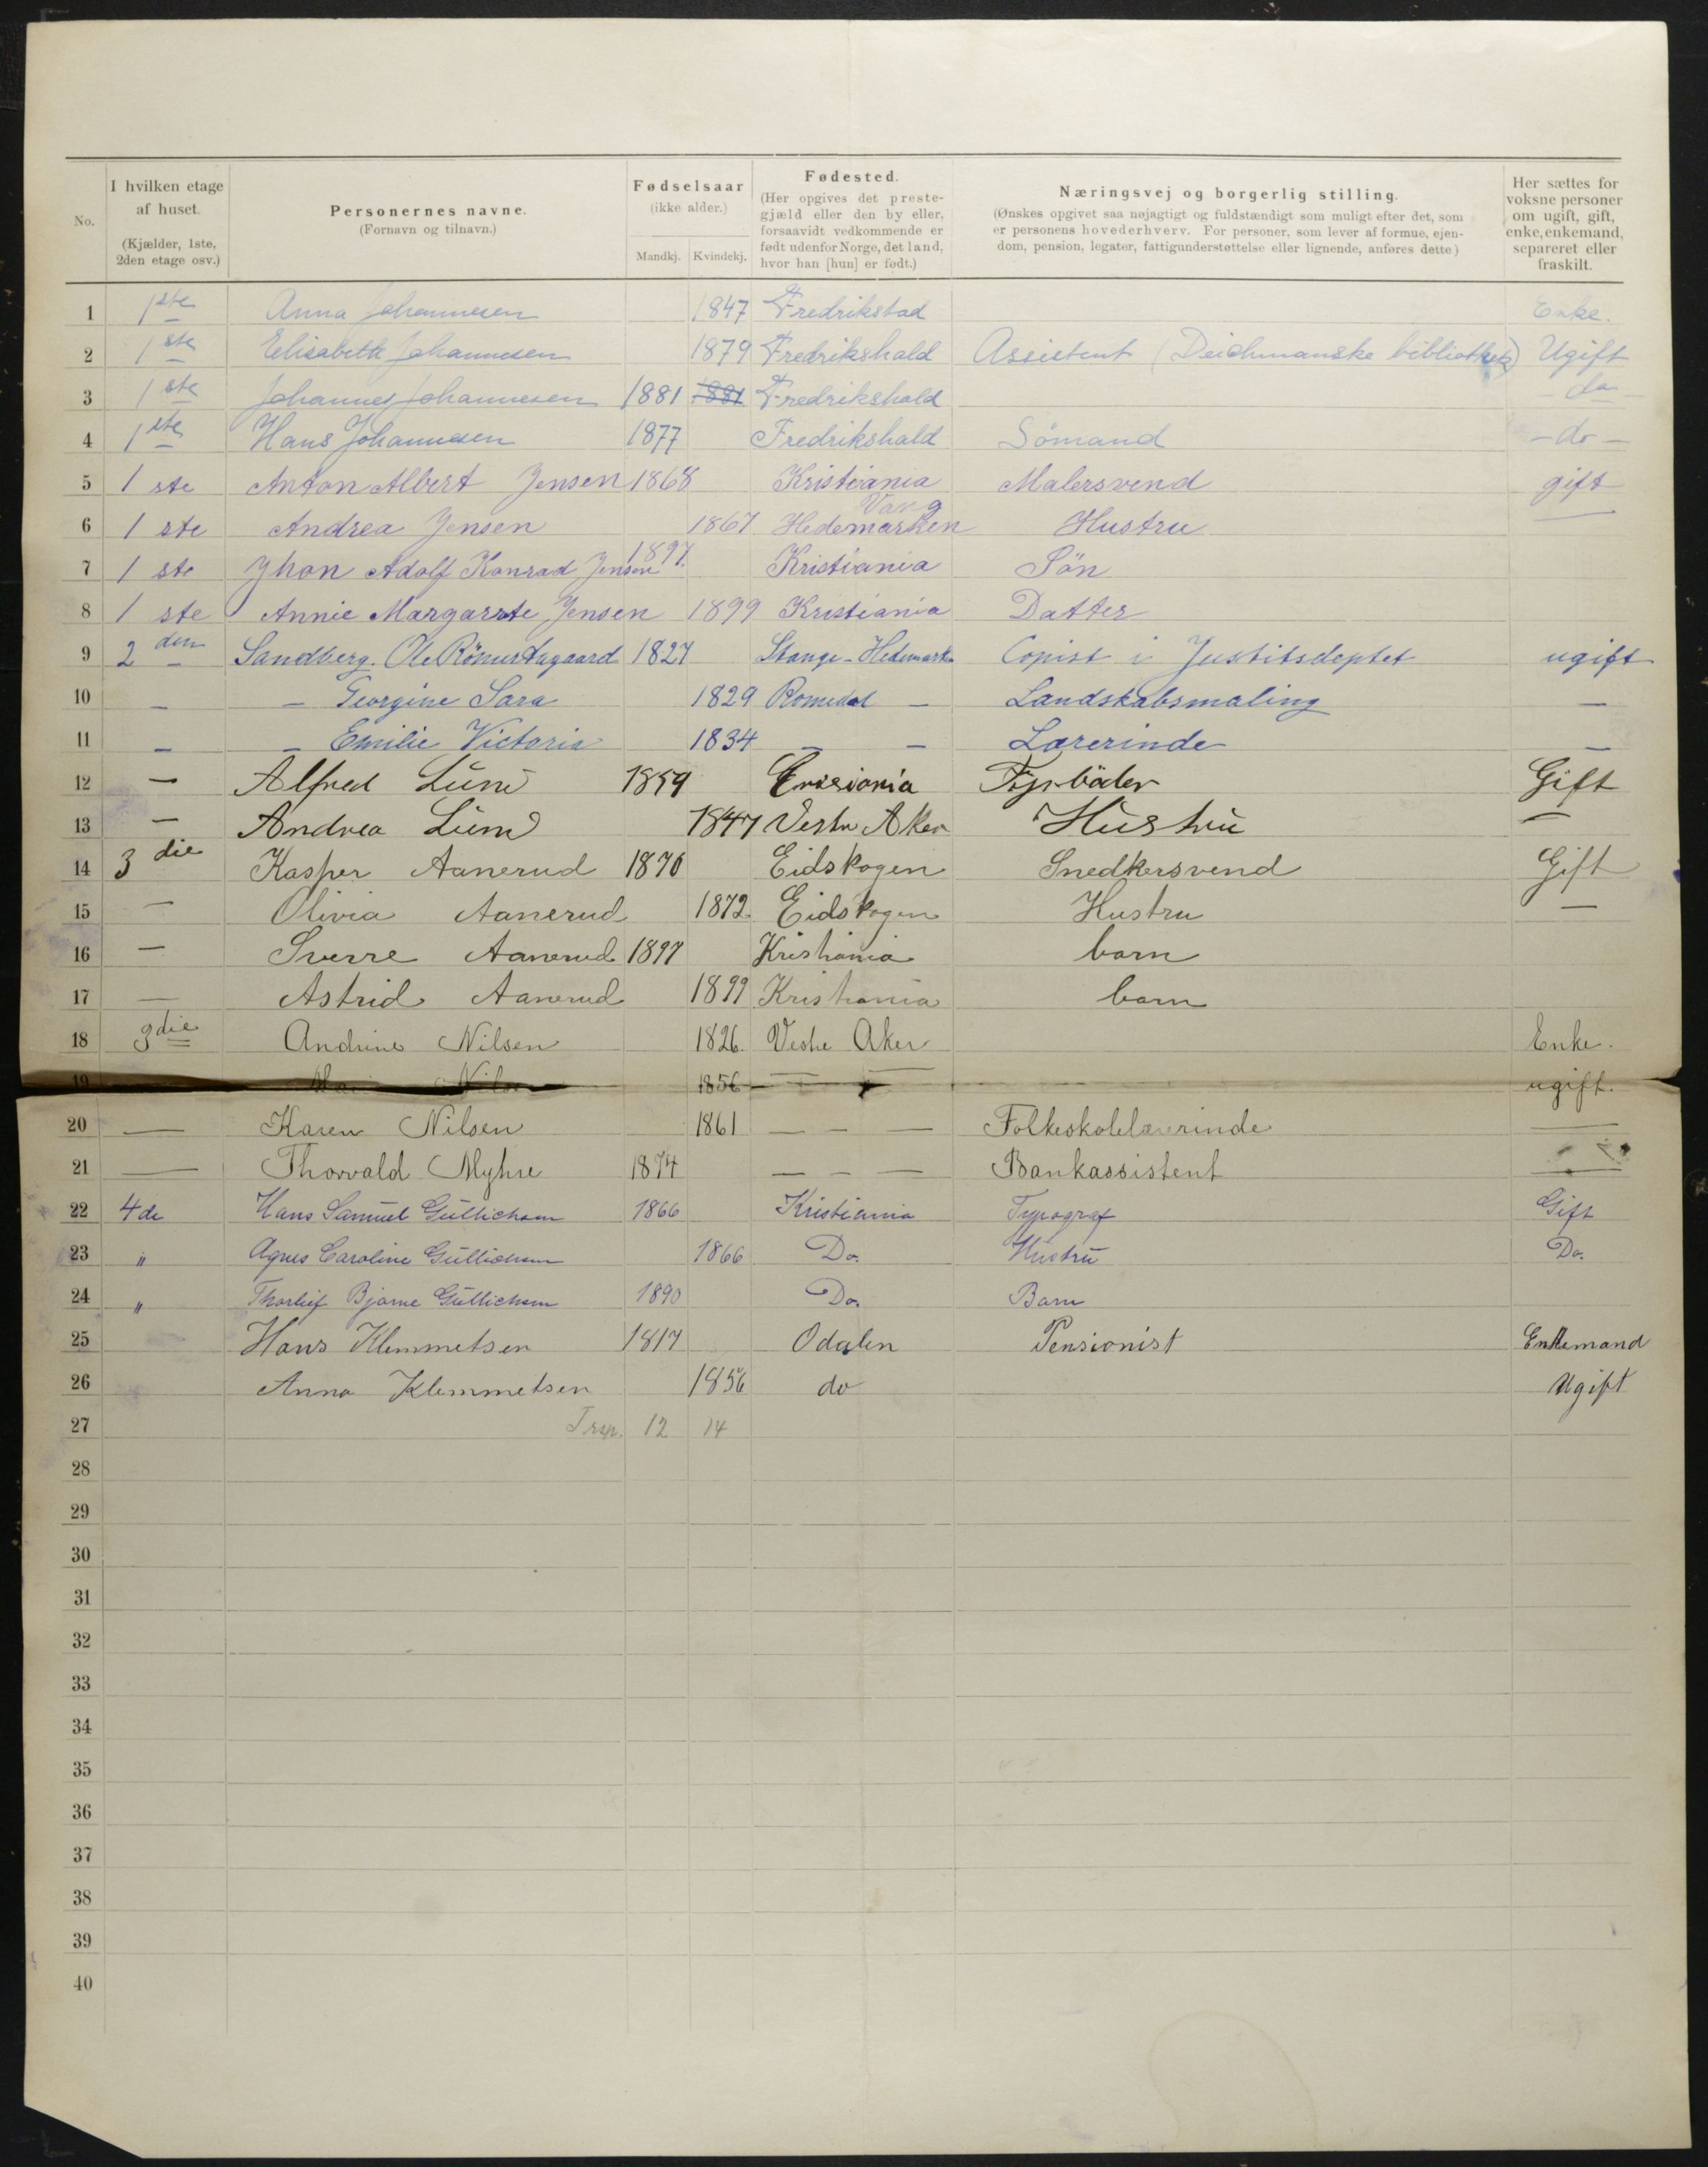 No. I hvilken etage af huset. (Kjælder, 1ste, 2den etage osv.) Personernes navne. (Fornavn og tilnavn.) Fødselsaar (ikke alder.) Mandkj. Kvindekj. Fødested. (Her opgives det prestegjæld eller den by eller, forsaavidt vedkommende er født udenfor Norge, det land, hvor han [hun] er født.) Næringsvej og borgerlig stilling. (Ønskes opgivet saa nøjagtigt og fuldstændigt som muligt efter det, som er personens hovederhverv. For personer, som lever af formue, ejendom, pension, legater, fattigunderstøttelse eller lignende, anføres dette) Her sættes for voksne personer om ugift, gift, enke, enkemand, separeret eller fraskilt.
1 1ste Anna Johannesen 1847 Fredrikstad Enke.
2 1ste Elisabeth Johannesen 1879 Fredrikshald Assistent (Deichmanske bibliothek) Ugift
3 1ste Johannes Johannesen 1881 1881 Fredrikshald do
4 1ste Hans Johannesen 1877 Fredrikshald Sömand - do -
5 1 ste Anton Albert Jensen 1868 Kristiania Malersvend gift
6 1 ste Andrea Jensen 1867 Vang Hedemarken Hustru —
7 1 ste Jhon Adolf Konrad Jensen 1897. Kristiania Sön
8 1 ste Annie Margarete Jensen 1899 Kristiania Datter
9 2den Sandberg. Ole Römer Aagaard 1827 Stange - Hedemark. Copist i Justitsdeptet ugift
10 — — Georgine Sara 1829 Romedal — Landskabsmaling —
11 — — Emilie Victoria 1834 — — Lærerinde —
12 — Alfred Lund 1859 Gift
13 — Andrea Lund 1847 Vestre Aker Hustru —
14 3die Kasper Aanerud 1870 Eidskogen Snedkersvend Gift
15 — Olivia Aanerud 1872 Eidskogen Hustru —
16 — Sverre Aanerud 1897 Kristiania barn
17 — Astrid Aanerud 1899 Kristiania barn
18 3die Andrine Nilsen 1826. Vestre Aker Enke.
19 1856 — — ugift.
20 — Karen Nilsen 1861 — - — Folkeskolelærerinde —
21 — Thorvald Myhre 1874 — - — Bankassistent —
22 4de Hans Samuel Gullichsen 1866 Kristiania Typograf Gift
23 " Agnes Caroline Gullichsen 1866 Do. Hustru Do.
24 " Thorleif Bjarne Gullichsen 1890 Do. Barn
25 Hans Klemmetsen 1817 Odalen Pensionist Enkemand
26 Anna Klemmetsen 1856 do Ugift
27 12 14
28
29
30
31
32
33
34
35
36
37
38
39
40